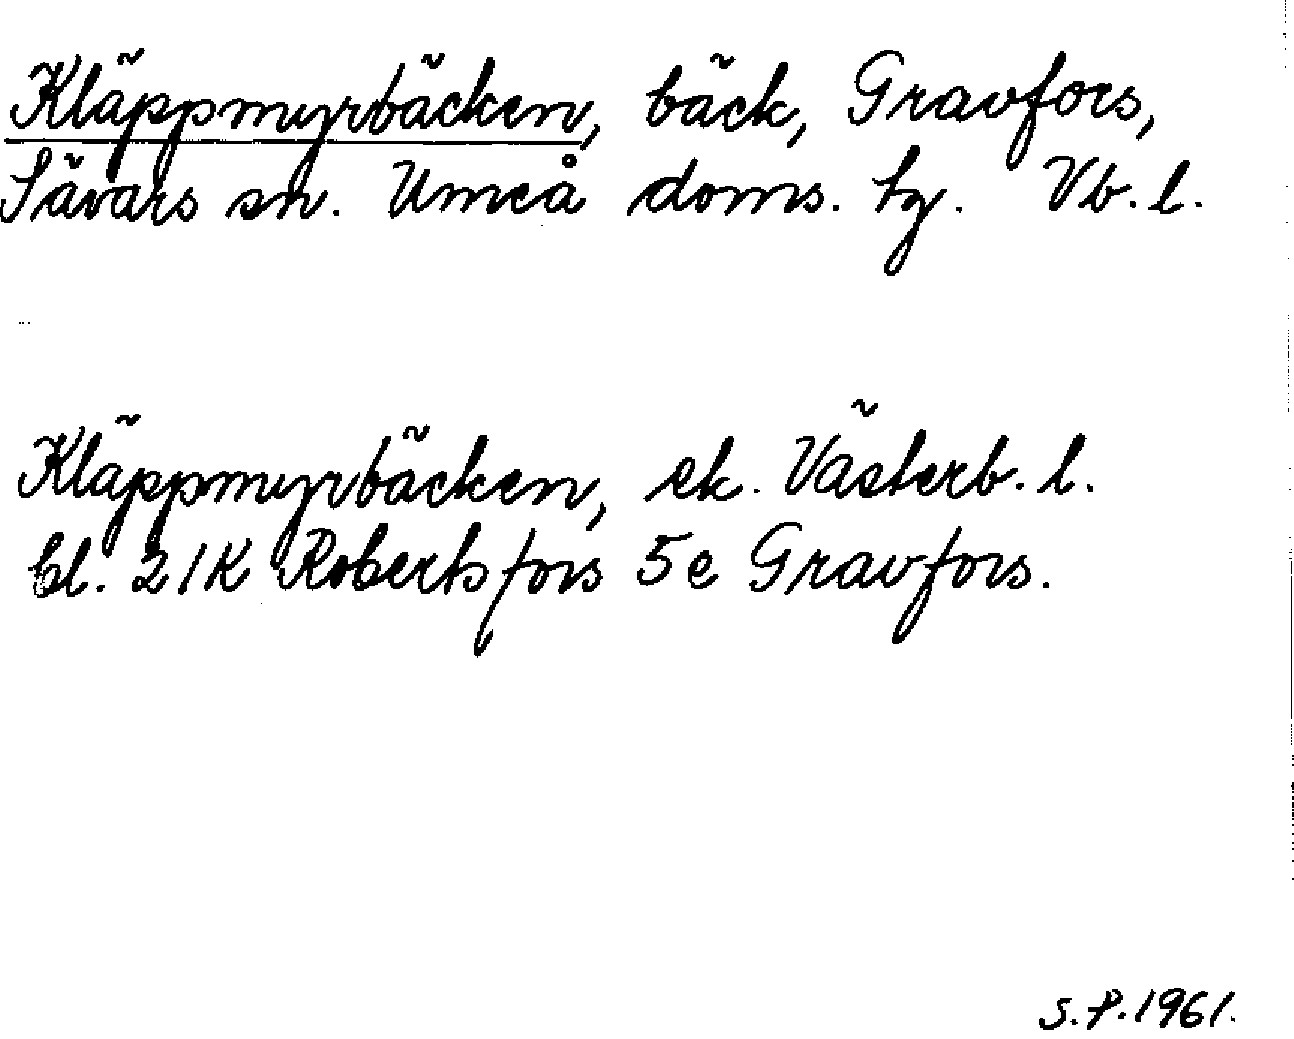 Kläppmyrbäcken, bäck, Gravfors,
Sävars sn. Umeå doms. tg. Vb. l.
Kläppmyrbäcken, ek. Västerb. l.
bl. 21K Robertsfors 5e Gravfors.
S.P.1961.